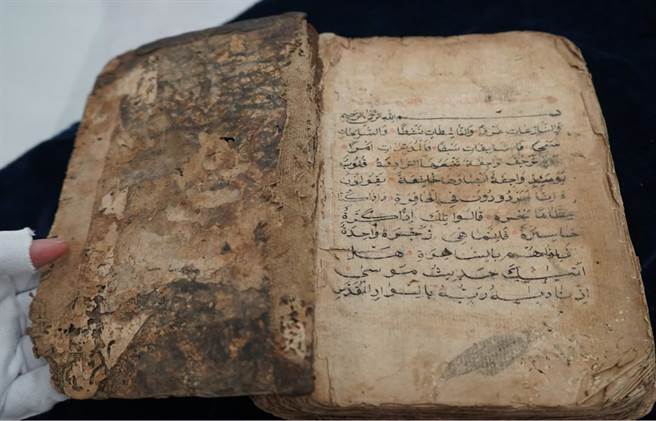 بسم الله الرحمن الرحيم
والنَّازِعَاتِ غَرْقًا وَالنَّاشِطَاتِ نَشْطًا وَالسَّابِحَاتِ
سَبْحًا فَالسَّابِقَاتِ سَبْقًا فَالْمُدَبِّرَاتِ أَمْرًا
تَرْجُفُ الرَّاجِفَةُ تَتْبَعُهَا الرَّادِفَةُ قُلُوبٌ
يَوْمَئِذٍ وَاجِفَةٌ أَبْصَارُهَا خَاشِعَةٌ يَقُولُونَ
ءَإِنَّا لَمَرْدُودُونَ فِي الْحَافِرَةِ ءَاِذَا كُنَّا
عِظَامًا نَخِرَةً قَالُوا تِلْكَ إِذًا كَرَّةٌ
خَاسِرَةٌ فَإِنَّمَا هِيَ زَجْرَةٌ وَاحِدَةٌ
فَإِذَا هُمْ بِالسَّاهِرَةِ هَلْ
اَتٰيكَ حَدِيثُ مُوسَى
إِذْ نَادٰيهُ رَبُّهُ بِالْوَادِ الْمُقَدَّسِ